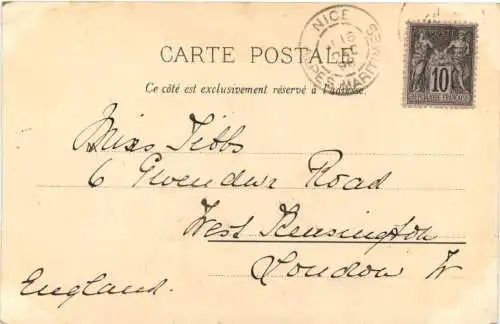 NICE
ALPES MARITIMES
CARTE POSTALE
Ce côté est exclusivement réservé à l'adresse.
10
Miss Tibbs
6 Gwendwr Road
West Kensington
London W
England.